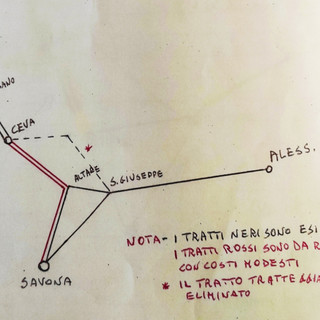 CEVA
ALTARE
S. GIUSEPPE
ALESS.
SAVONA
NOTA - I TRATTI NERI SONO ESI
I TRATTI ROSSI SONO DA R
CON COSTI MODESTI
* IL TRATTO TRATTEGGIA
ELIMINATO